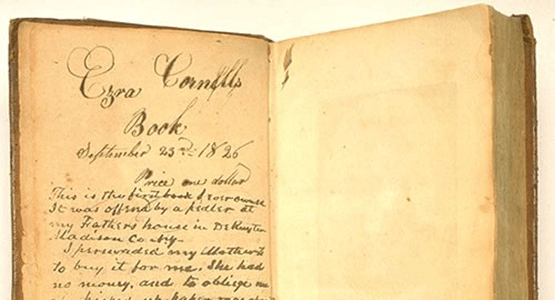 Ezra Cornells
Book
September 23rd 1826
Price one dollar
This is the first book I ever owned
It was offered by a pedler at
my Fathers house in DeRuyter
Madison Co NY.
I persuaded my Mother
to buy it for me. She had
no money, and to oblige me